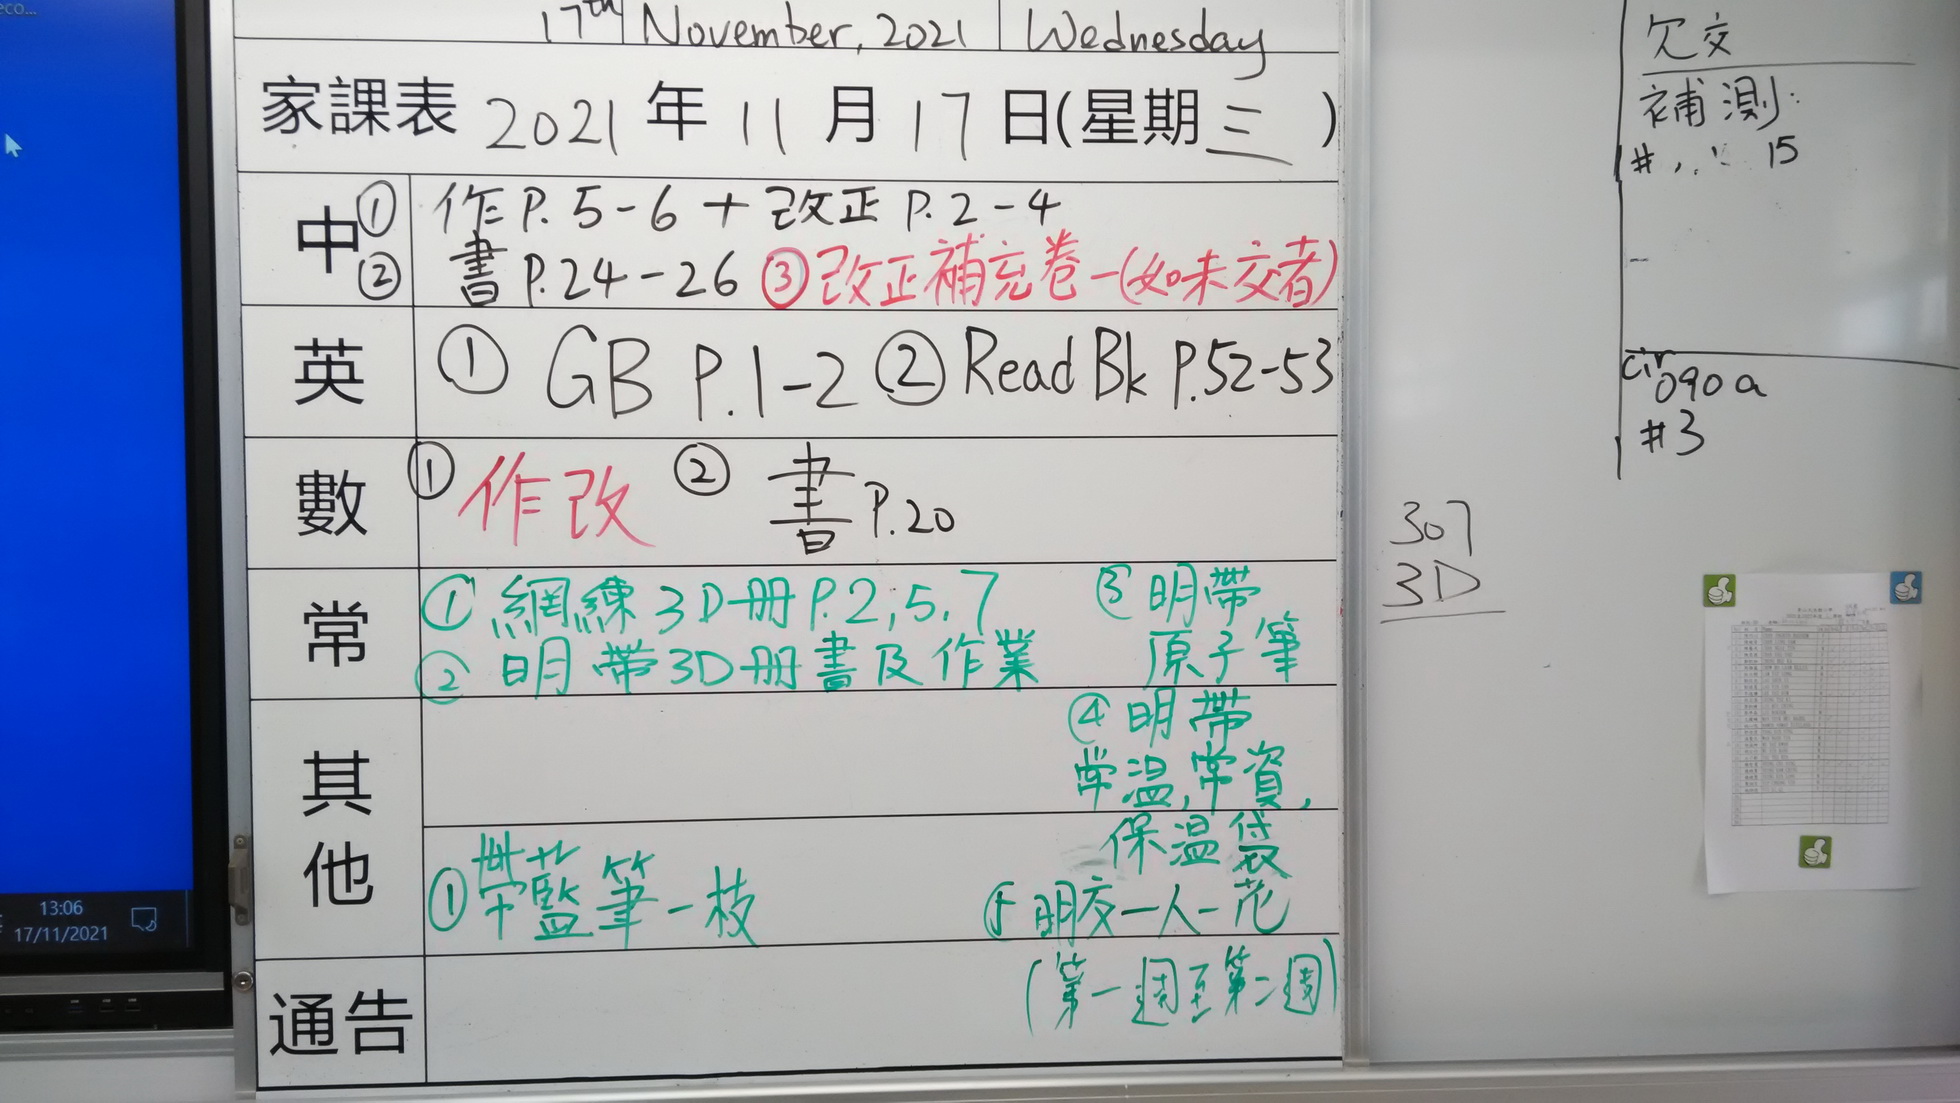 17th November, 2021 Wednesday
家課表 2021 年 11 月 17 日(星期 三 )
中 ① 作 P. 5-6 + 改正 P. 2-4
② 書 P.24-26 ③改正補充卷一(如未交者)
英 ① GB P.1-2 ② Read Bk P.52-53
數 ① 作改 ② 書 P.20
常 ① 網練 3D冊 P.2,5,7
② 明帶3D冊書及作業
③ 明帶
原子筆
④ 明帶
常温,常資,
保温袋
明交一人一花
(第一週至第二週)
其他
① 筆一枝
通告
欠交
補測:
# 15
cir 090a
#3
307
3D
eco...
13:06
17/11/2021